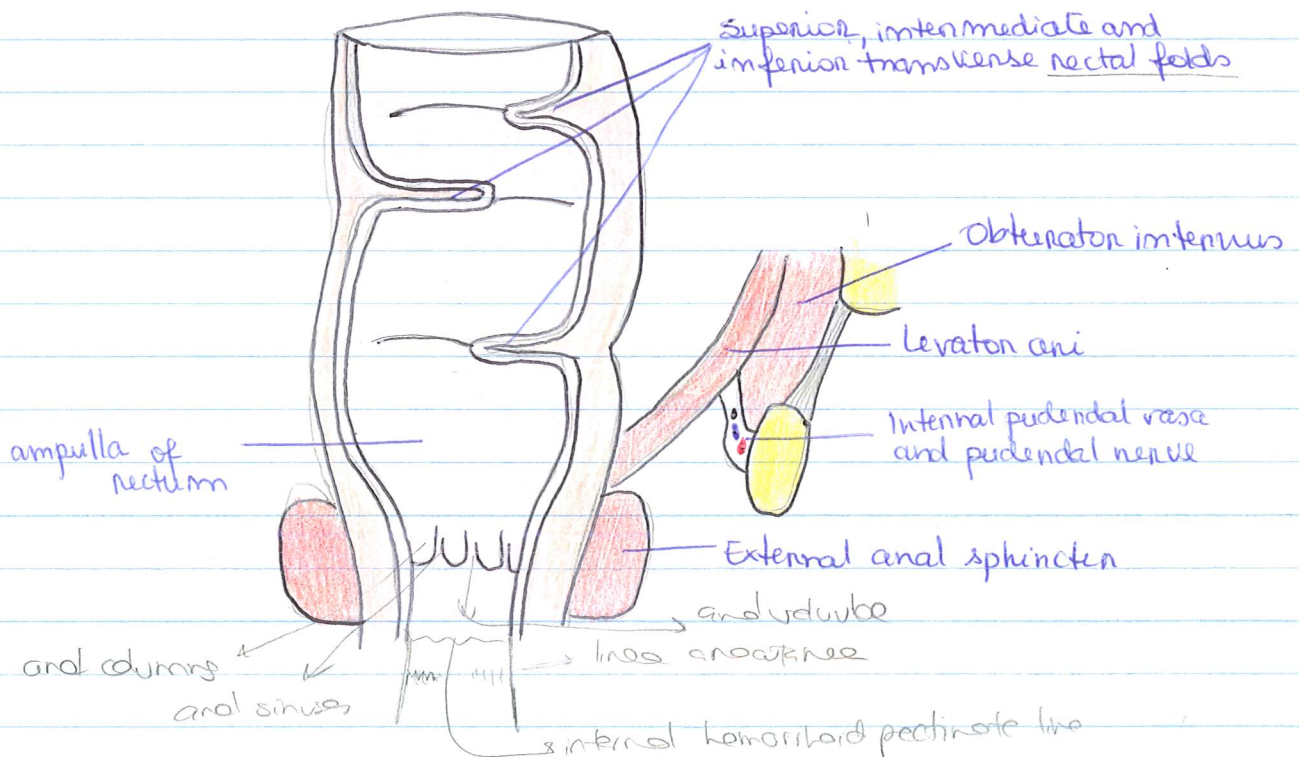 Superior, intermediate and
inferior transverse rectal folds
Obturator internus
Levator ani
Internal pudendal vasa
and pudendal nerve
ampulla of
rectum
External anal sphincter
anal columns
anal sinuses
linea
internal hemorrhoid pectinate line